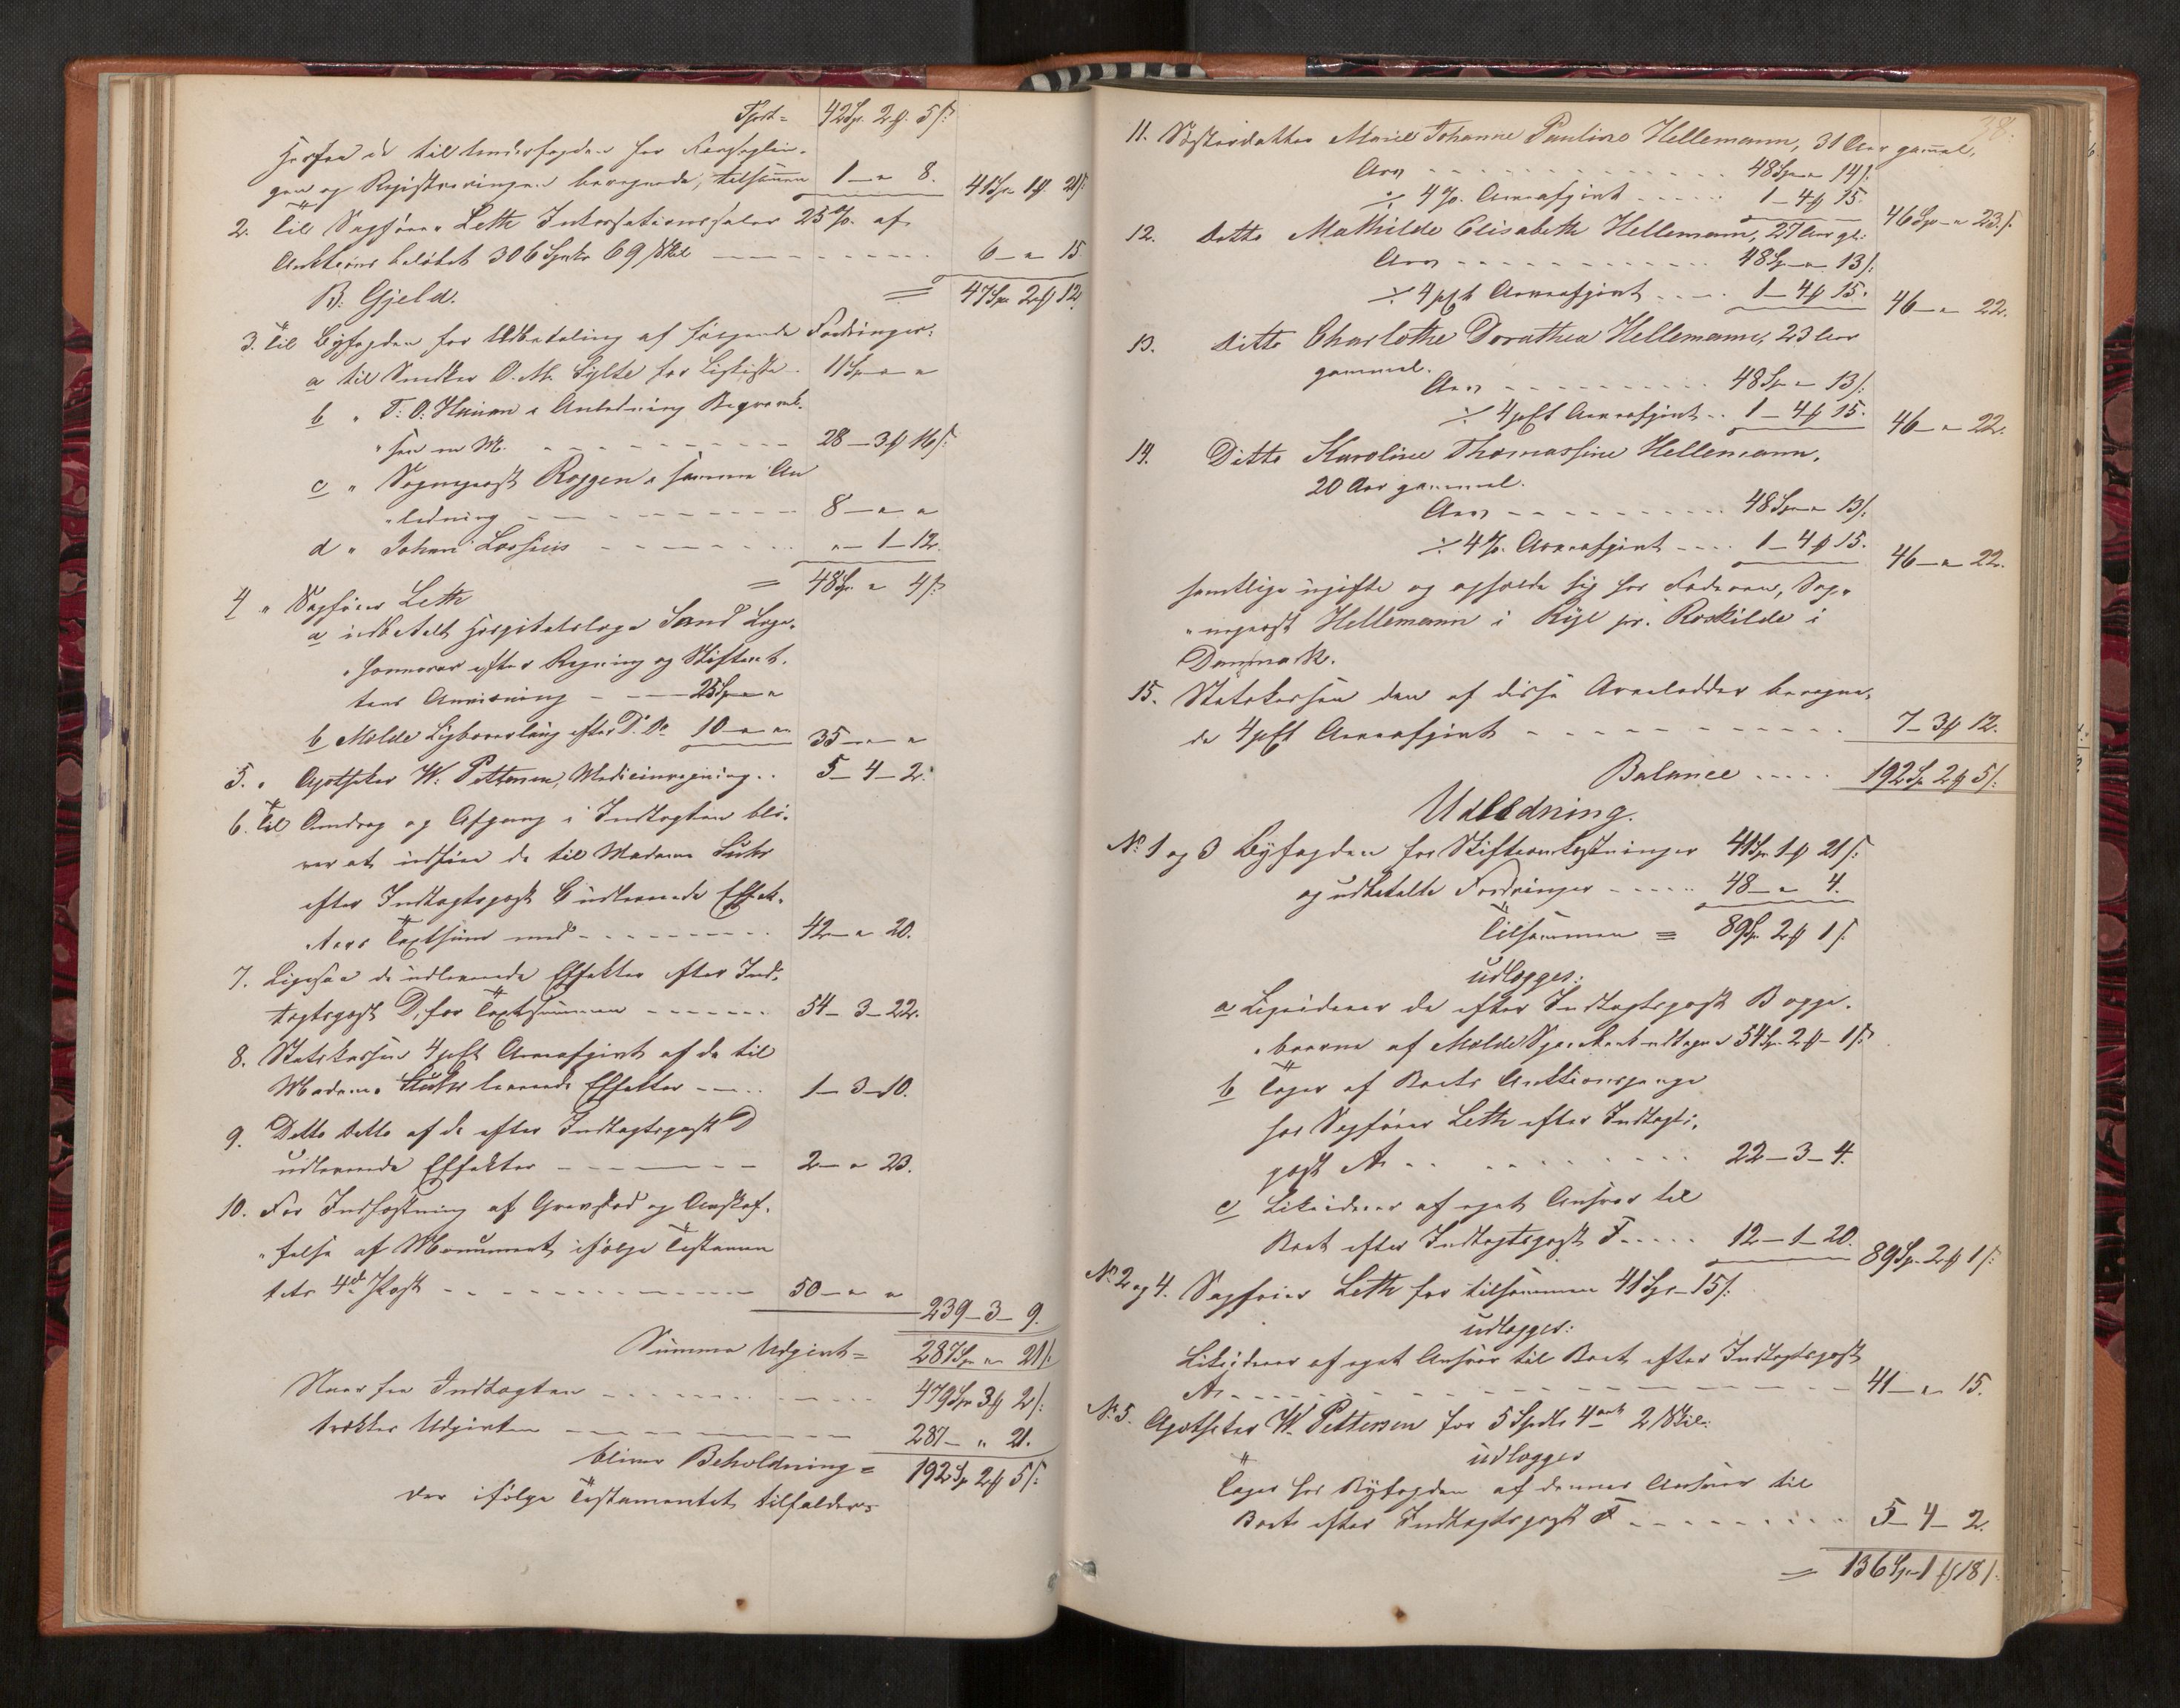 Tport = 42 Sp. 2 ₰ 5 ſ:
Herfra de til Underfogden for Forseglin-
gen og Registreringen beregnede, tilsammen 1 — " 8. 41 Sp. 1 ₰ 21 ſ:
2. Til Sagfører Leth Inkassationssalær 25 %. af
Auktions beløbet 306 Spdlr 69 Skil — — — 6 — " 15
B. Gjeld. = 47 Sp. 2 ₰ 12.
3. Til Byfogden for Udbetaling af følgende Fordringer:
a til Snedker O. M. Sylte for Ligkiste - 11 Sp " "
b " T. O. Hauan i Anledning Begravel-
"sen m M. - - - 28 — 3 ₰ 16 ſ:
c " Sogneprest Roggen i samme An
"ledning — — — 8 — " "
d " Johan Lossius - - - " — 1 — 12.
= 48 Sp. " 4 ſ:
4 " Sagfører Leth
a udbetalt Hospitalslæge Sand Læge-
"honnorar efter Regning og Skifteret-
tens Anvisning - — 25 Sp " "
b Molde Ligbærerlaug efter Do. Do 10 — " " 35 — " "
5. " Apotheker W. Pettersen, Medicinregning . . 5 — 4 — 2.
6. Til Andrag og Afgang i Indtægten bli-
ver at indføre de til Madame Suhr
efter Indtægtspost C udleverede Effek-
ters Taxtsum med - - - 42 — " 20.
7. Ligesaa de udleverede Effekter efter Ind-
tægtspost D, for Taxtsummen - - - 54 — 3 — 22.
8. Statskassen 4 pCt Arveafgivt af de til
Madame Suhr leverede Effekter - - - 1 — 3 — 10.
9. Ditto Ditto af de efter Indtægtspost D
udleverede Effekter - - - 2 — " 23.
10. For Indfæstning af Gravsted og Anskaf-
"felse af Monument ifølge Testamen
tets 4de Post - - - 50 — " "
239 — 3 — 9.
Summa Udgivt = 287 Sp " 21 ſ:
Naar fra Indtægten - - - 479 Sp 3 ₰ 2 ſ:
trækkes Udgivten - - - 287 — " 21.
bliver Beholdning = 192 Sp 2 ₰ 5 ſ:
der ifølge Testamentet tilfalder:
38.
11. Søsterdatter Marie Johanne Pauline Hellemann, 31 Aar gammel,
Arv - - - 48 Sp " 14 ſ:
÷ 4 %. Arveafgivt - - - 1 — 4 ₰ 15. 46 Sp — " 23 ſ.
12. Ditto Mathilde Elisabeth Hellemann, 27 Aar gl:
Arv - - - 48 Sp — " 13 ſ:
÷ 4 pCt Arveafgivt - - - 1 — 4 ₰ 15. 46 — " 22.
13. Ditto Charlothe Dorathea Hellemann, 23 Aar
gammel.
Arv - - - 48 Sp " 13 ſ:
÷ 4 pCt Arveafgivt . . 1 — 4 ₰ 15. 46 — " 22.
14. Ditto Karoline Thomassine Hellemann,
20 Aar gammel.
Arv - - - 48 Sp — " 13 ſ:
÷ 4 %. Arveafgivt - - - 1 — 4 ₰ 15. 46 — " 22.
samtlige ugifte og opholde sig hos Faderen, Sog-
"neprest Hellemann i Rye pr. Roskilde i
Danmark.
15. Statskassen den af disse Arvelodder beregne-
de 4 pCt Arveafgivt - - - 7 — 3 ₰ 12.
Balance - - - 192 Sp 2 ₰ 5 ſ:
Udledning.
No. 1 og 3 Byfogden for Skifteomkostninger 41 Sp. 1 ₰ 21 ſ:
og udbetalte Fordringer - - - 48 — " 4.
Tilsammen = 89 Sp. 2 ₰ 1 ſ:
udlægges:
a Liqviderer de efter Indtægtspost B oppe-
"baarne af Molde Sparebank udtagne 54 Sp. 2 ₰ — 1 ſ:
b Tager af Boets Auktionspenge
hos Sagfører Leth efter Indtægts-
post A. - - - 22 — 3 — 4.
c Likviderer af eget Ansvar til
Boet efter Indtægtspost F - - - 12 — 1 — 20. 89 Sp. 2 ₰ 1 ſ:
No. 2 og 4. Sagfører Leth for tilsammen 41 Sp " 15 ſ:
udlægges:
Likviderer af eget Ansvar til Boet efter Indtægtspost
A. - - - 41 — " 15.
No. 5. Apotheker W. Pettersen for 5 Spdlr 4 ort 2 Skil:
udlægges
Tager hos Byfogden af dennes Ansvar til
Boet efter Indtægtspost F - - - 5 — 4 — 2.
= 136 Sp — 1 ₰ 18 ſ: